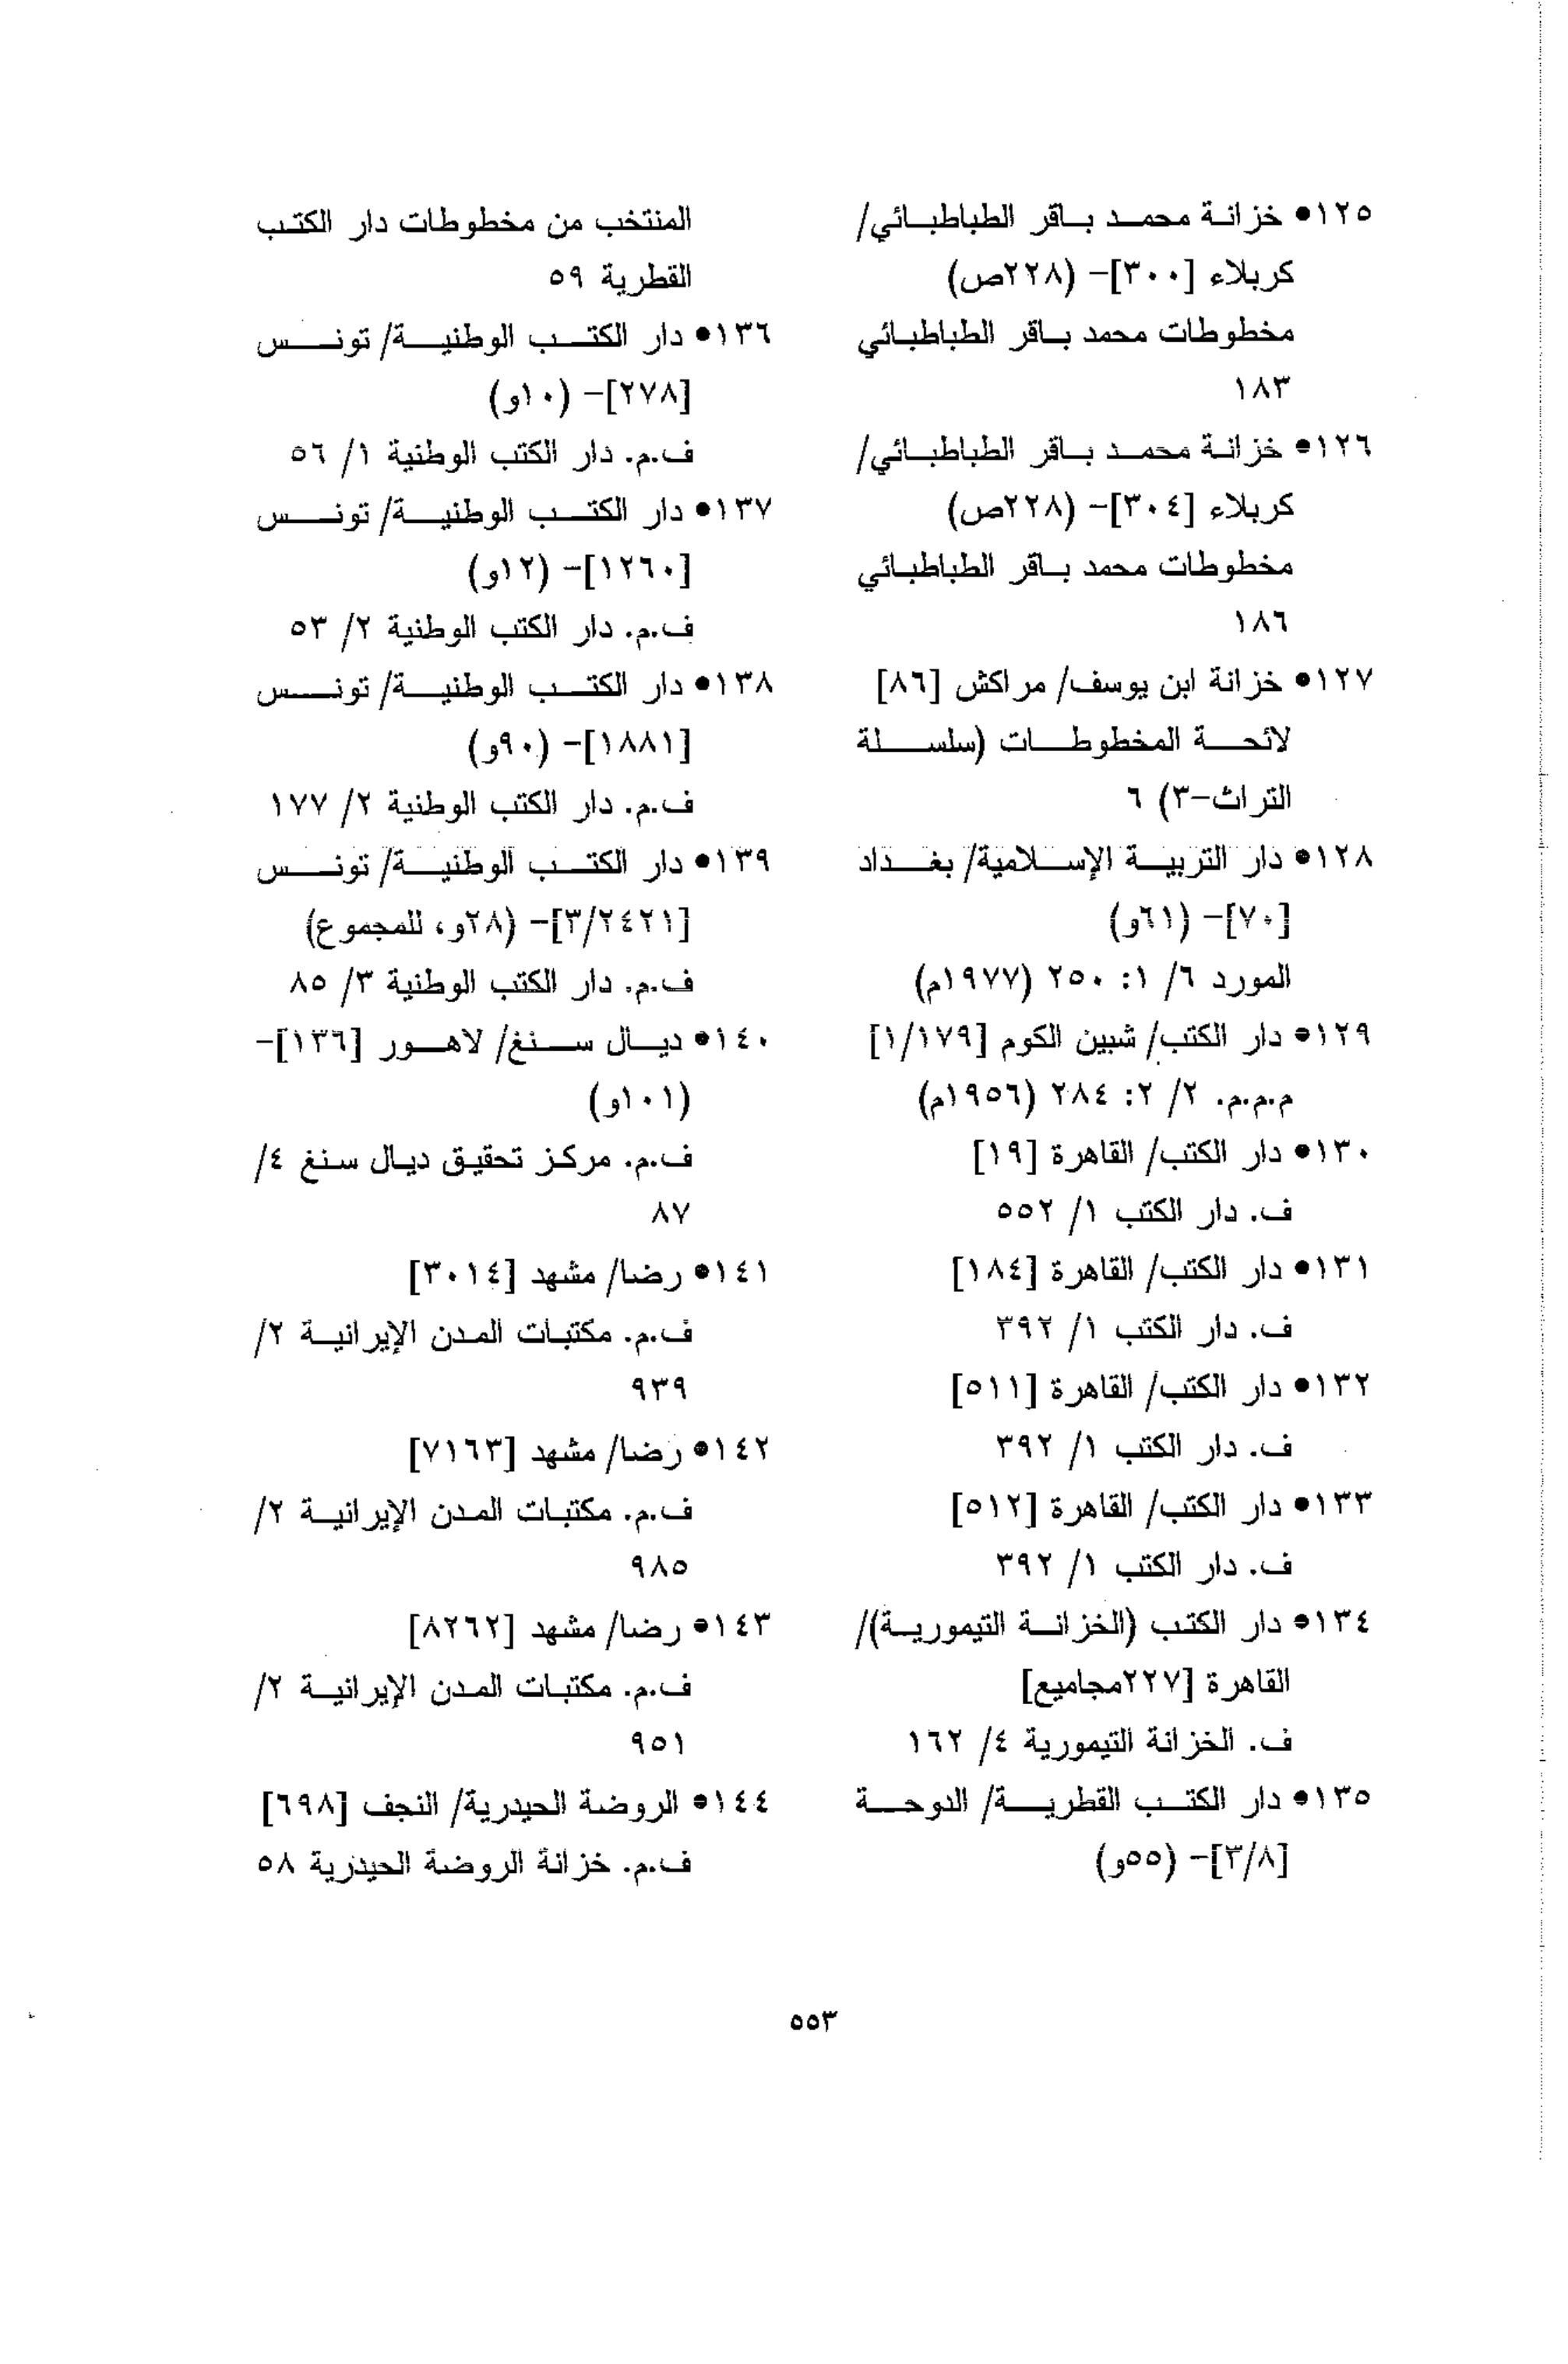 ١٢٥• خزانة محمد باقر الطباطبائي/
كربلاء [٣٠٠]- (٢٢٨ص)
مخطوطات محمد باقر الطباطبائي
١٨٣
١٢٦• خزانة محمد باقر الطباطبائي/
كربلاء [٣٠٤]- (٢٢٨ص)
مخطوطات محمد باقر الطباطبائي
١٨٦
١٢٧• خزانة ابن يوسف/ مراكش [٨٦]
لائحة المخطوطات (سلسلة
التراث-٣) ٦
١٢٨• دار التربية الإسلامية/ بغداد
[٧٠]- (٦١و)
المورد ٦/ ١: ٢٥٠ (١٩٧٧م)
١٢٩• دار الكتب/ شبين الكوم [١/١٧٩]
م.م.م. ٢/ ٢: ٢٨٤ (١٩٥٦م)
١٣٠• دار الكتب/ القاهرة [١٩]
ف. دار الكتب ١/ ٥٥٢
١٣١• دار الكتب/ القاهرة [١٨٤]
ف. دار الكتب ١/ ٣٩٢
١٣٢• دار الكتب/ القاهرة [٥١١]
ف. دار الكتب ١/ ٣٩٢
١٣٣• دار الكتب/ القاهرة [٥١٢]
ف. دار الكتب ١/ ٣٩٢
١٣٤• دار الكتب (الخزانة التيمورية)/
القاهرة [٢٢٧مجاميع]
ف. الخزانة التيمورية ٤/ ١٦٢
١٣٥• دار الكتب القطرية/ الدوحة
[٣/٨]- (٥٥و)
المنتخب من مخطوطات دار الكتب
القطرية ٥٩
١٣٦• دار الكتب الوطنية/ تونس
[٢٧٨]- (١٠و)
ف.م. دار الكتب الوطنية ١/ ٥٦
١٣٧• دار الكتب الوطنية/ تونس
[١٢٦٠]- (١٢و)
ف.م. دار الكتب الوطنية ٢/ ٥٣
١٣٨• دار الكتب الوطنية/ تونس
[١٨٨١]- (٩٠و)
ف.م. دار الكتب الوطنية ٢/ ١٧٧
١٣٩• دار الكتب الوطنية/ تونس
[٣/٢٤٢١]- (٢٨و، للمجموع)
ف.م. دار الكتب الوطنية ٣/ ٨٥
١٤٠• ديال سنغ/ لاهور [١٣٦]-
(١٠١و)
ف.م. مركز تحقيق ديال سنغ ٤/
٨٧
١٤١• رضا/ مشهد [٣٠١٤]
ف.م. مكتبات المدن الإيرانية ٢/
٩٣٩
١٤٢• رضا/ مشهد [٧١٦٣]
ف.م. مكتبات المدن الإيرانية ٢/
٩٨٥
١٤٣• رضا/ مشهد [٨٢٦٢]
ف.م. مكتبات المدن الإيرانية ٢/
٩٥١
١٤٤• الروضة الحيدرية/ النجف [٦٩٨]
ف.م. خزانة الروضة الحيدرية ٥٨
٥٥٣